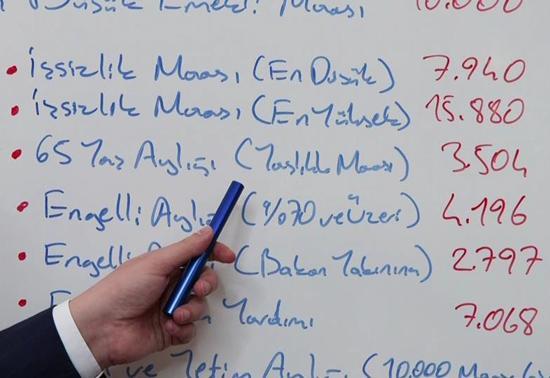 Düşük Emekli Maaşı 10.000
• İşsizlik Maaşı (En Düşük) 7.940
• İşsizlik Maaşı (En Yüksek) 15.880
• 65 Yaş Aylığı (Yaşlılık Maaşı) 3.504
• Engelli Aylığı (%70 ve Üzeri) 4.196
• Engelli (Bakan Yakınına) 2.797
• Yardımı 7.068
ve Yetim Aylığı (10.000